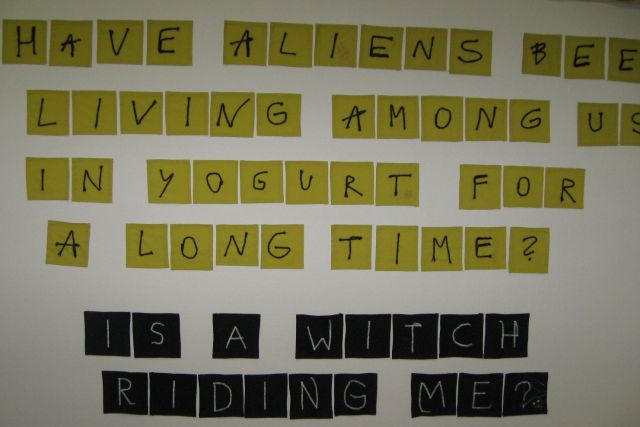 HAVE ALIENS BEE
LIVING AMONG US
IN YOGURT FOR
A LONG TIME?
IS A WITCH
RIDING ME?